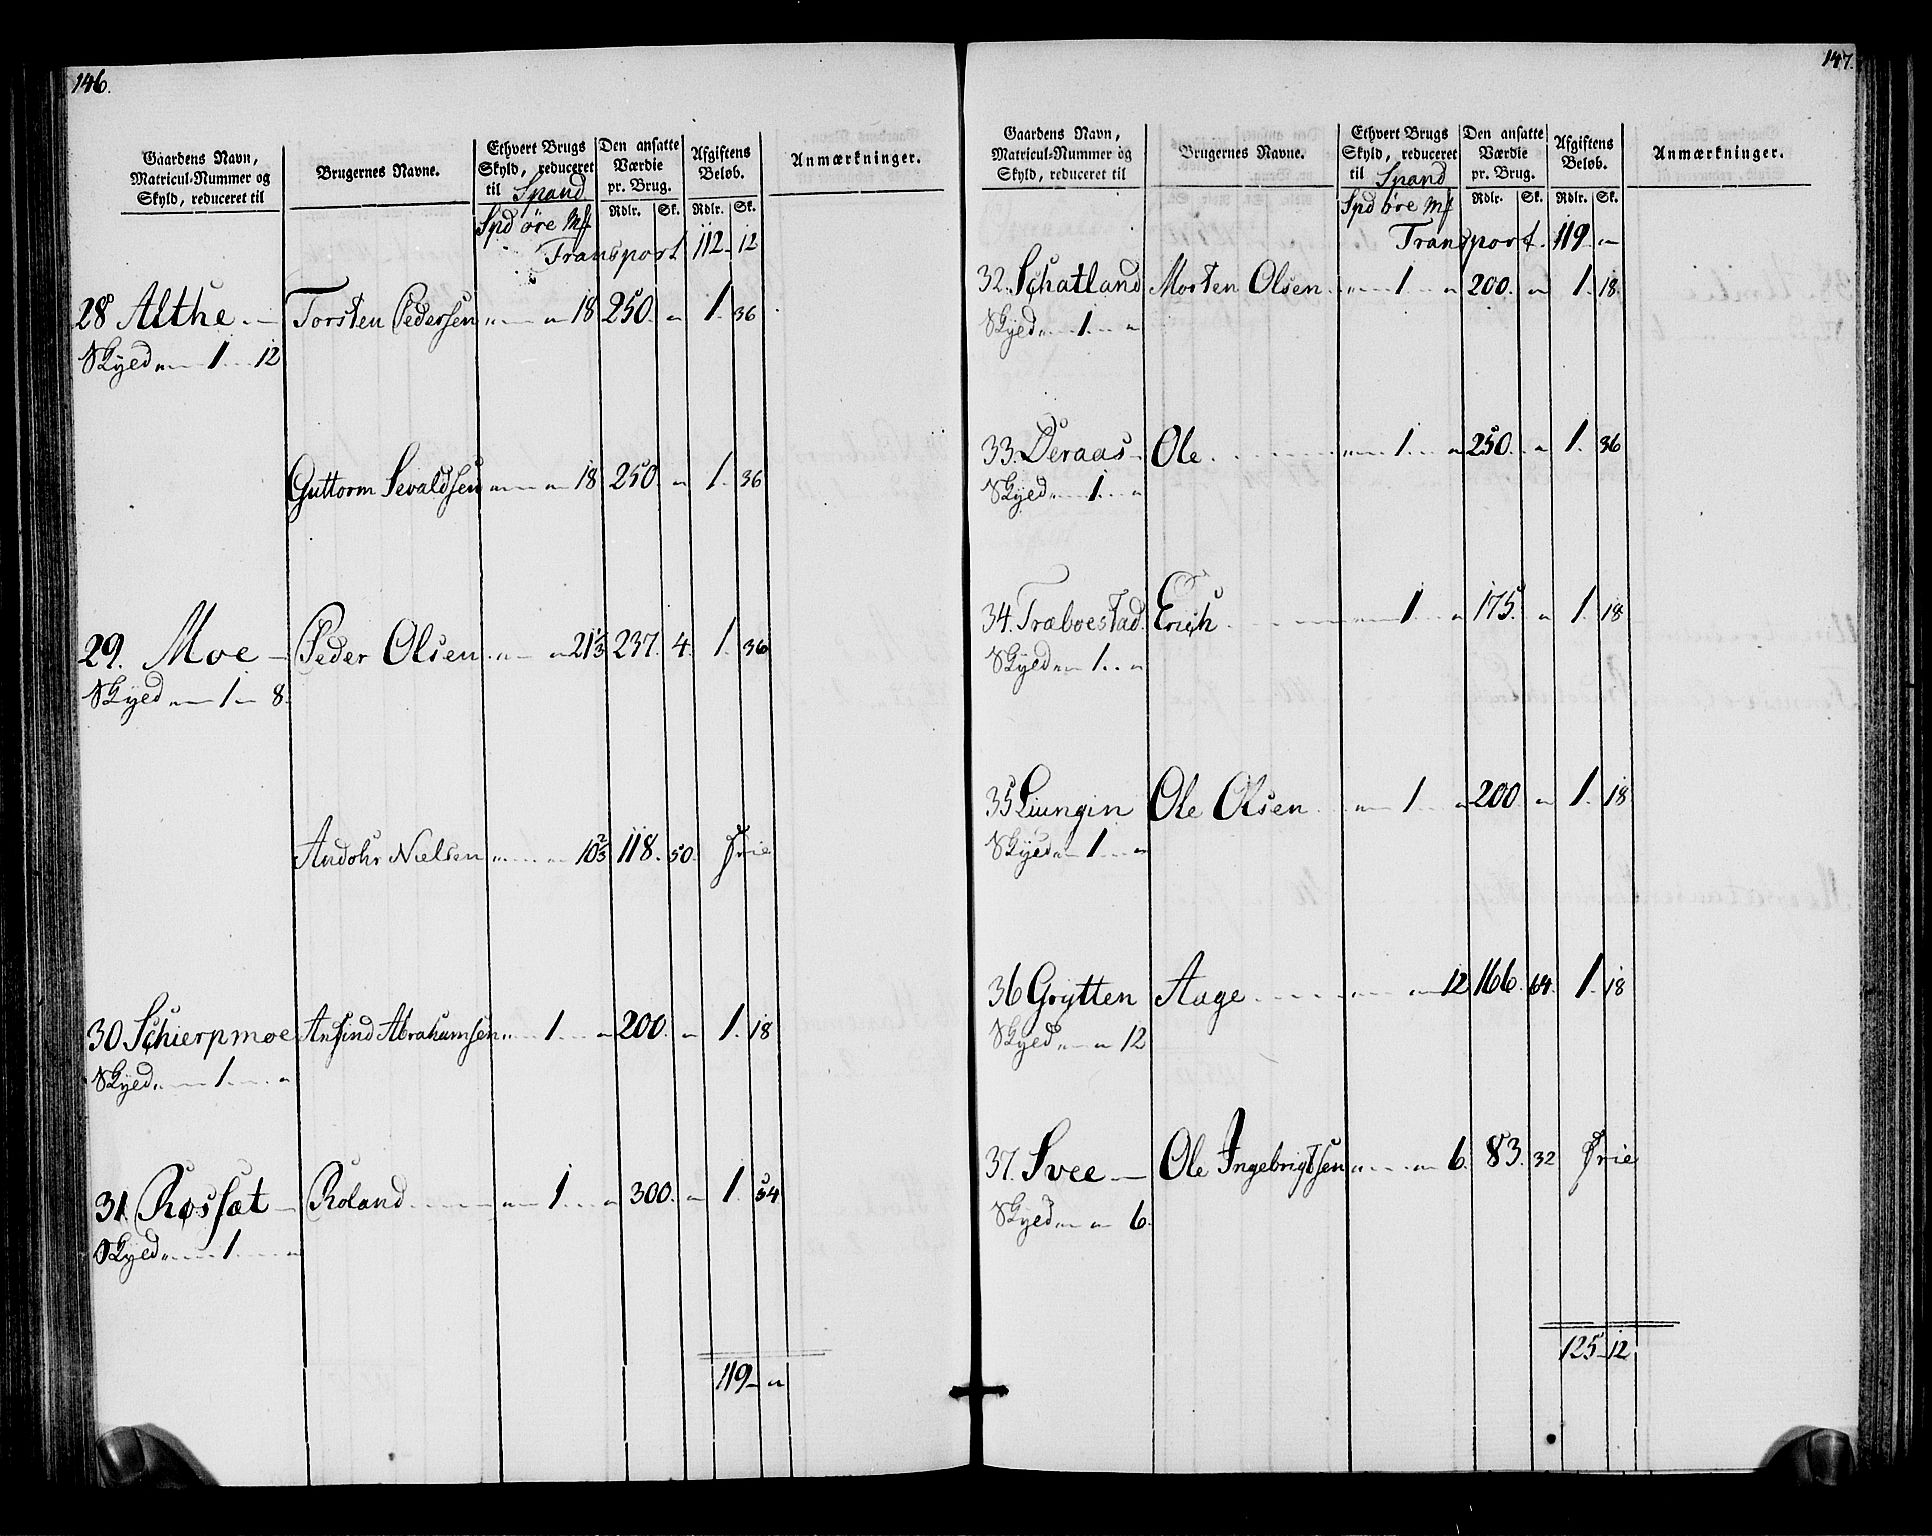 146.
Gaardens Navn, Matricul-Nummer og Skyld, reduceret til
Brugernes Navne.
Ethvert Brugs Skyld, reduceret til Spand
Den ansatte Værdie pr. Brug.
Afgiftens Beløb.
Anmærkninger.
Spd öre Mf Rdlr. Sk. Rdlr. Sk.
Transport 112 12
28 Althe Torsten Pedersen " " 18 250. " 1. 36
Skyld " 1 12
Guttorm Sevaldsen " " 18 250. " 1. 36
29. Moe Peder Olsen " " 21 1/3 237. 4. 1. 36
Skyld " 1 8.
Andohr Nielsen " " 10 2/3 118. 50. Frie
30 Schierpmoe Ansind Abrahamsen " 1 " 200. " 1. 18
Skyld " 1 "
31. Rossæt Roland " 1 " 300. " 1. 54
Skyld " 1 "
119 "
147.
Gaardens Navn, Matricul-Nummer og Skyld, reduceret til
Brugernes Navne.
Ethvert Brugs Skyld, reduceret til Spand
Den ansatte Værdie pr. Brug.
Afgiftens Beløb.
Anmærkninger.
Spd öre Mf Rdlr. Sk. Rdlr. Sk.
Transport. 119 "
32. Schatland Morten Olsen " 1 " 200. " 1. 18.
Skyld " 1 "
33. Deraas Ole " 1 " 250. " 1. 36
Skyld " 1 "
34. Træboestad. Erich " 1 " 175. " 1. 18
Skyld " 1 "
35 Liungin Ole Olsen " 1 " 200 " 1. 18
Skyld " 1 "
36 Grytten Aage " " 12 166. 64. 1. 18
Skyld " " 12
37. Svee Ole Ingebrigtsen " " 6. 83. 32 Frie
Skyld " " 6.
125 12.